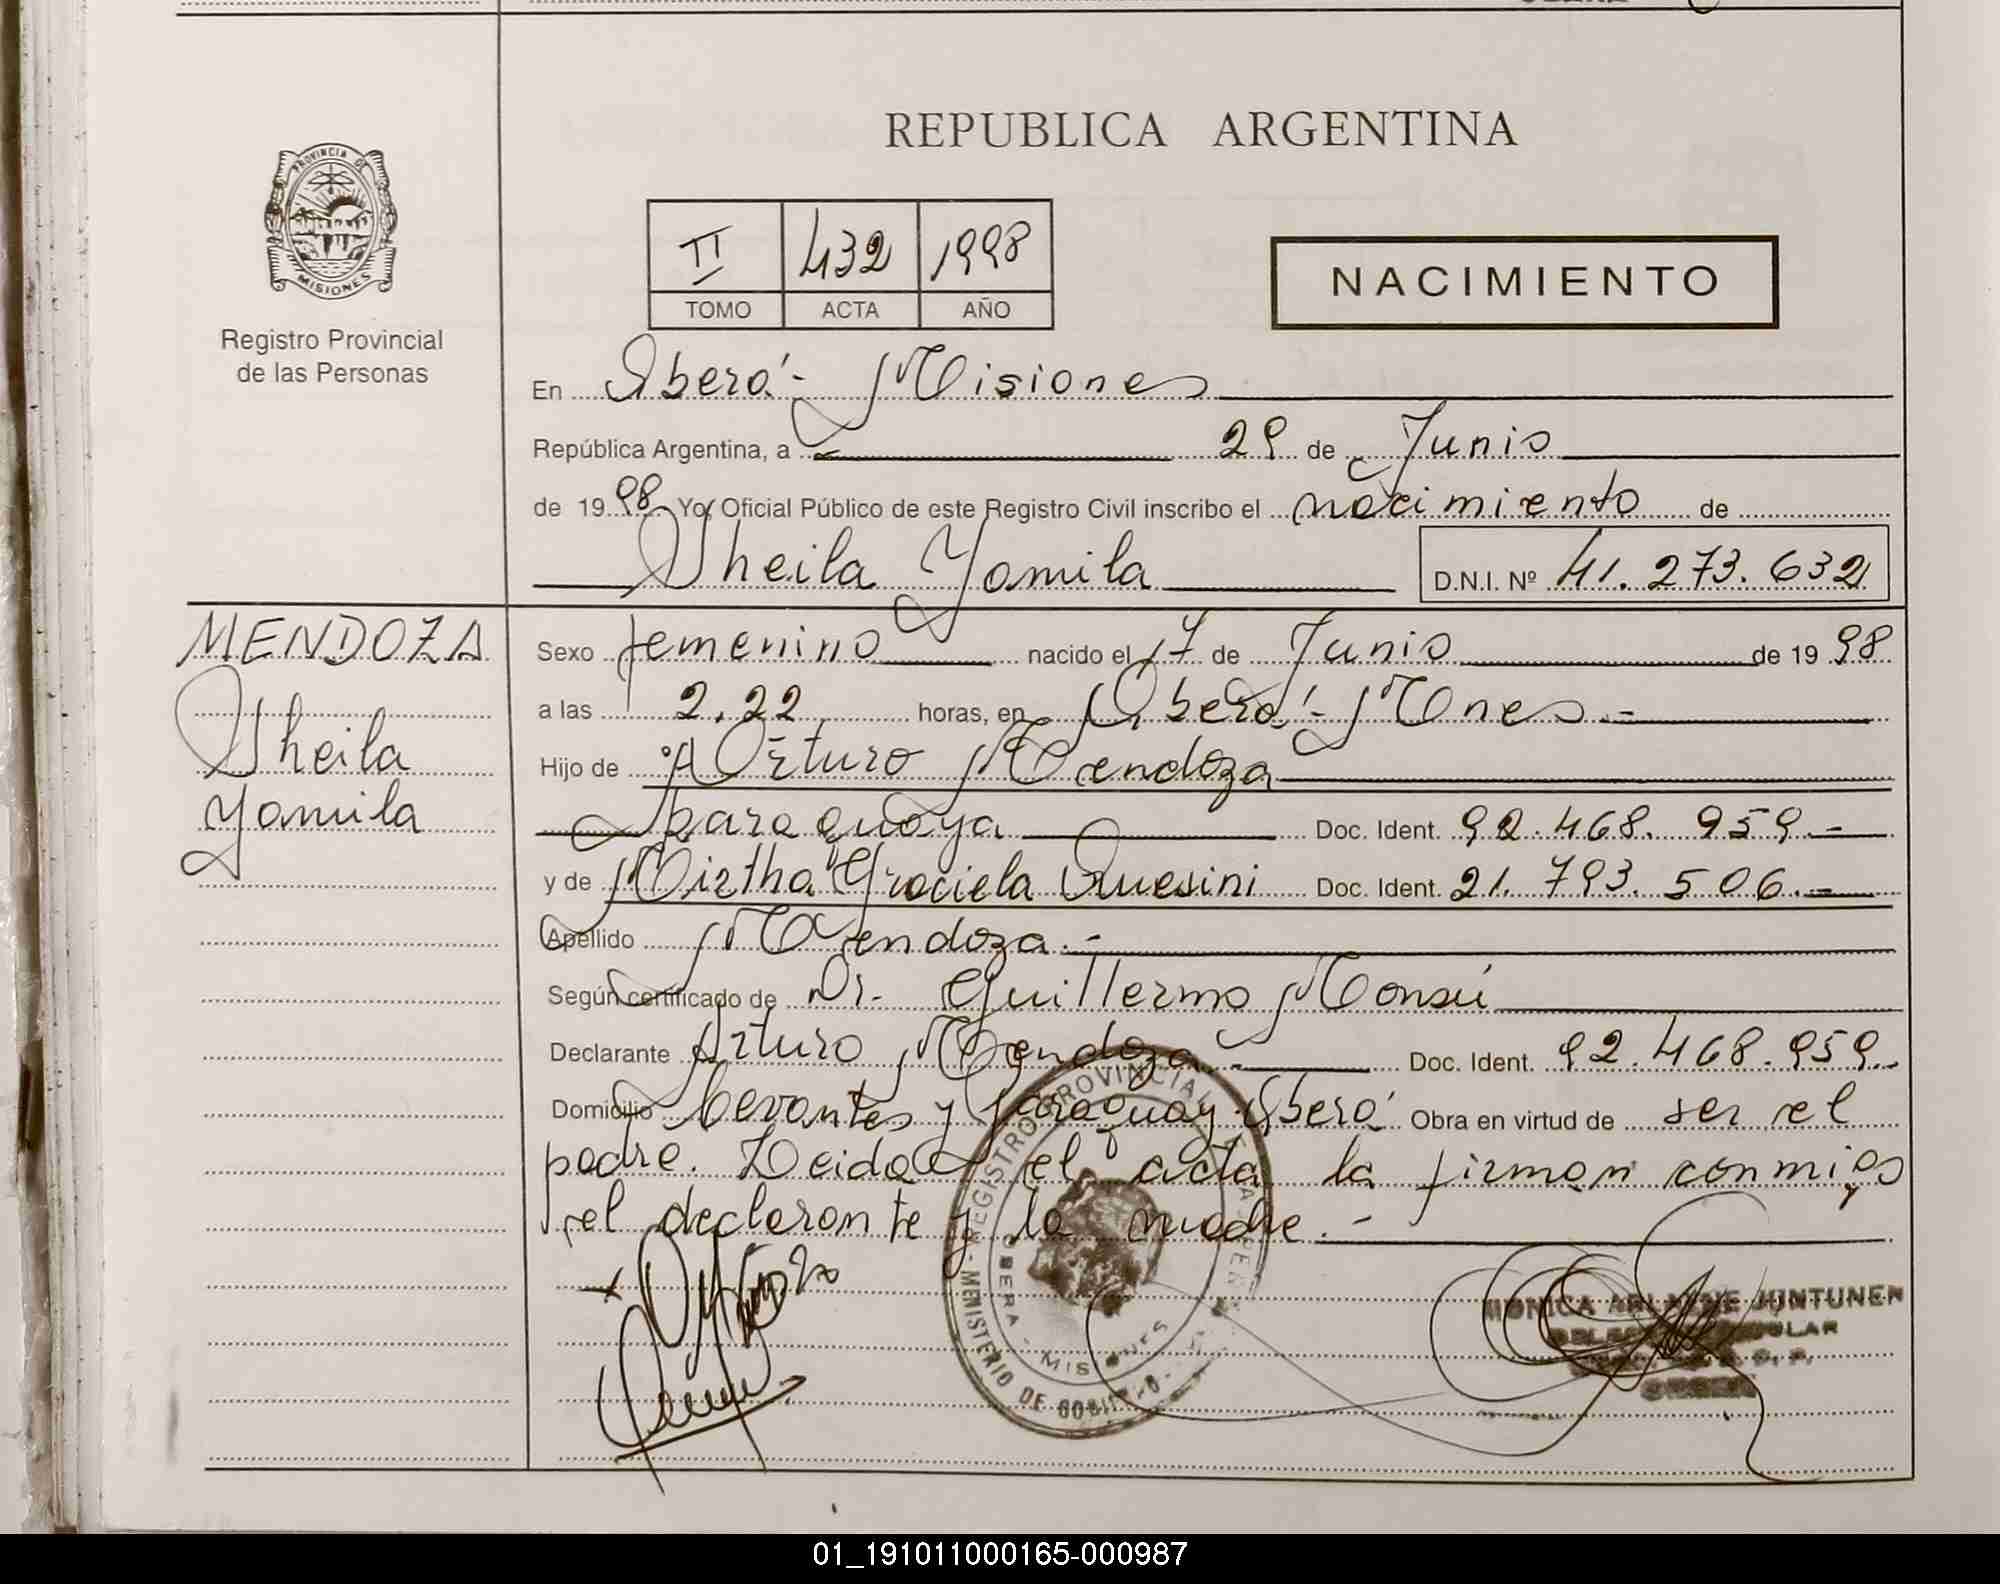 REPUBLICA ARGENTINA
PROVINCIA DE
MISIONES
Registro Provincial
de las Personas
II 432 1998
TOMO ACTA AÑO
NACIMIENTO
En Oberá - Misiones
República Argentina, a 29 de Junio
de 1998 Yo, Oficial Público de este Registro Civil inscribo el nacimiento de
Sheila Yamila D.N.I. Nº 41.273.632
MENDOZA
Sheila
Yamila
Sexo femenino nacido el 17 de Junio de 1998
a las 2.22 horas, en Oberá - Mnes.-
Hijo de Arturo Mendoza
paraguaya Doc. Ident. 92.468.959.-
y de Mirtha Graciela Quesini Doc. Ident. 21.793.506.-
Apellido Mendoza.-
Según certificado de Dr. Guillermo Monsú
Declarante Arturo Mendoza.- Doc. Ident. 92.468.959.-
Domicilio Cevantes y Paraguay Oberá Obra en virtud de ser el
padre. Leida el acta la firman conmigo
el declarante y la madre.-
REGISTRO PROVINCIAL DE LAS PER
OBERA - MISIONES
MINISTERIO DE GOBIERNO
MONICA ARIADNE JUNTUNEN
01_191011000165-000987